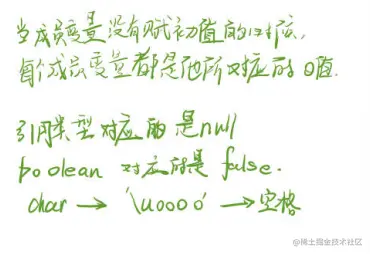 当成员变量没有赋初值的时候,
每个成员变量都是他所对应的0值.
引用类型对应的是null
boolean 对应的是 false.
char → '\u0000' → 空格
@稀土掘金技术社区